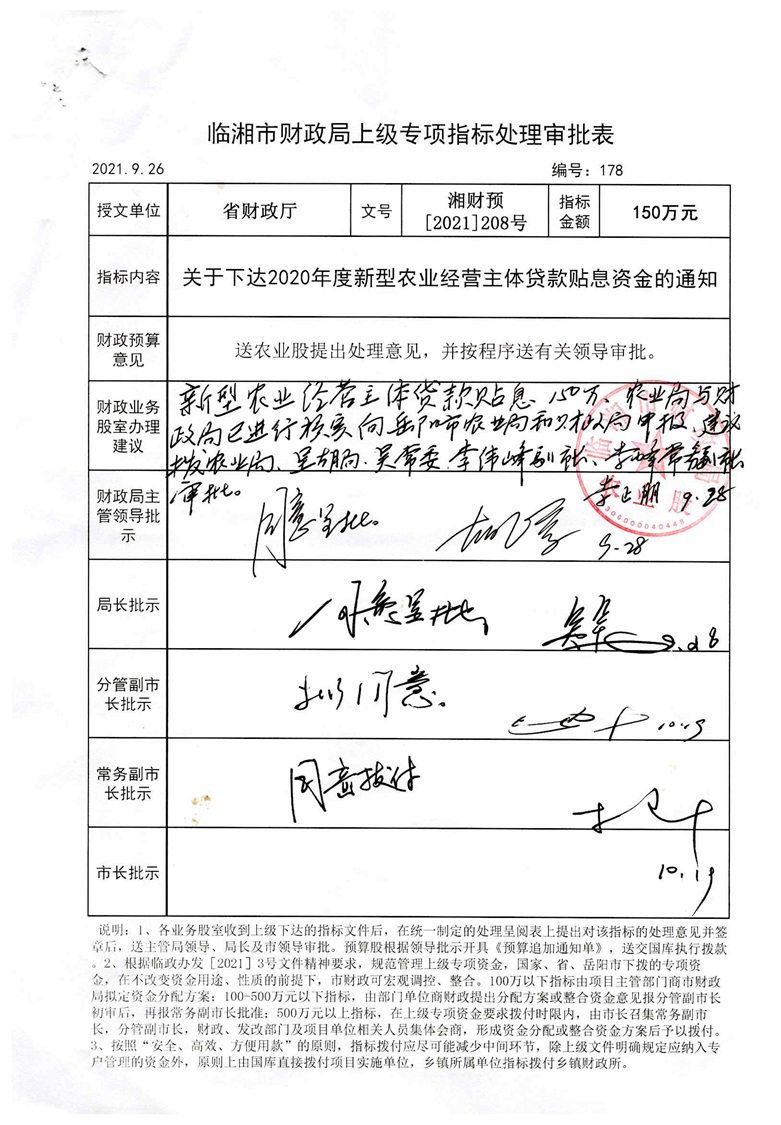 临湘市财政局上级专项指标处理审批表
2021.9.26 编号：178
授文单位 省财政厅 文号 湘财预[2021]208号 指标金额 150万元
指标内容 关于下达2020年度新型农业经营主体贷款贴息资金的通知
财政预算意见 送农业股提出处理意见，并按程序送有关领导审批。
财政业务股室办理建议
新型农业经营主体贷款贴息150万、农业局与财
政局已进行核实向岳阳市农业局和财政局申报，建议
拨农业局、呈胡局、吴常委、李伟峰副市长、李峰常务副市长
审批。
李正朋 9.28
农业股
304000040448
财政局主管领导批示
同意呈批。
9.28
局长批示
同意呈批
分管副市长批示
拟同意。
10.19
常务副市长批示
同意拨付
市长批示
10.19
说明：1、各业务股室收到上级下达的指标文件后，在统一制定的处理呈阅表上提出对该指标的处理意见并签
章后，送主管局领导、局长及市领导审批。预算股根据领导批示开具《预算追加通知单》，送交国库执行拨款
。2、根据临政办发［2021］3号文件精神要求，规范管理上级专项资金，国家、省、岳阳市下拨的专项资
金，在不改变资金用途、性质的前提下，市财政可宏观调控、整合。100万以下指标由项目主管部门商市财政
局拟定资金分配方案；100-500万元以下指标，由部门单位商财政提出分配方案或整合资金意见报分管副市长
初审后，再报常务副市长批准；500万元以上指标，在上级专项资金要求拨付时限内，由市长召集常务副市
长，分管副市长，财政、发改部门及项目单位相关人员集体会商，形成资金分配或整合资金方案后予以拨付。
3、按照“安全、高效、方便用款”的原则，指标拨付应尽可能减少中间环节，除上级文件明确规定应纳入专
户管理的资金外，原则上由国库直接拨付项目实施单位，乡镇所属单位指标拨付乡镇财政所。